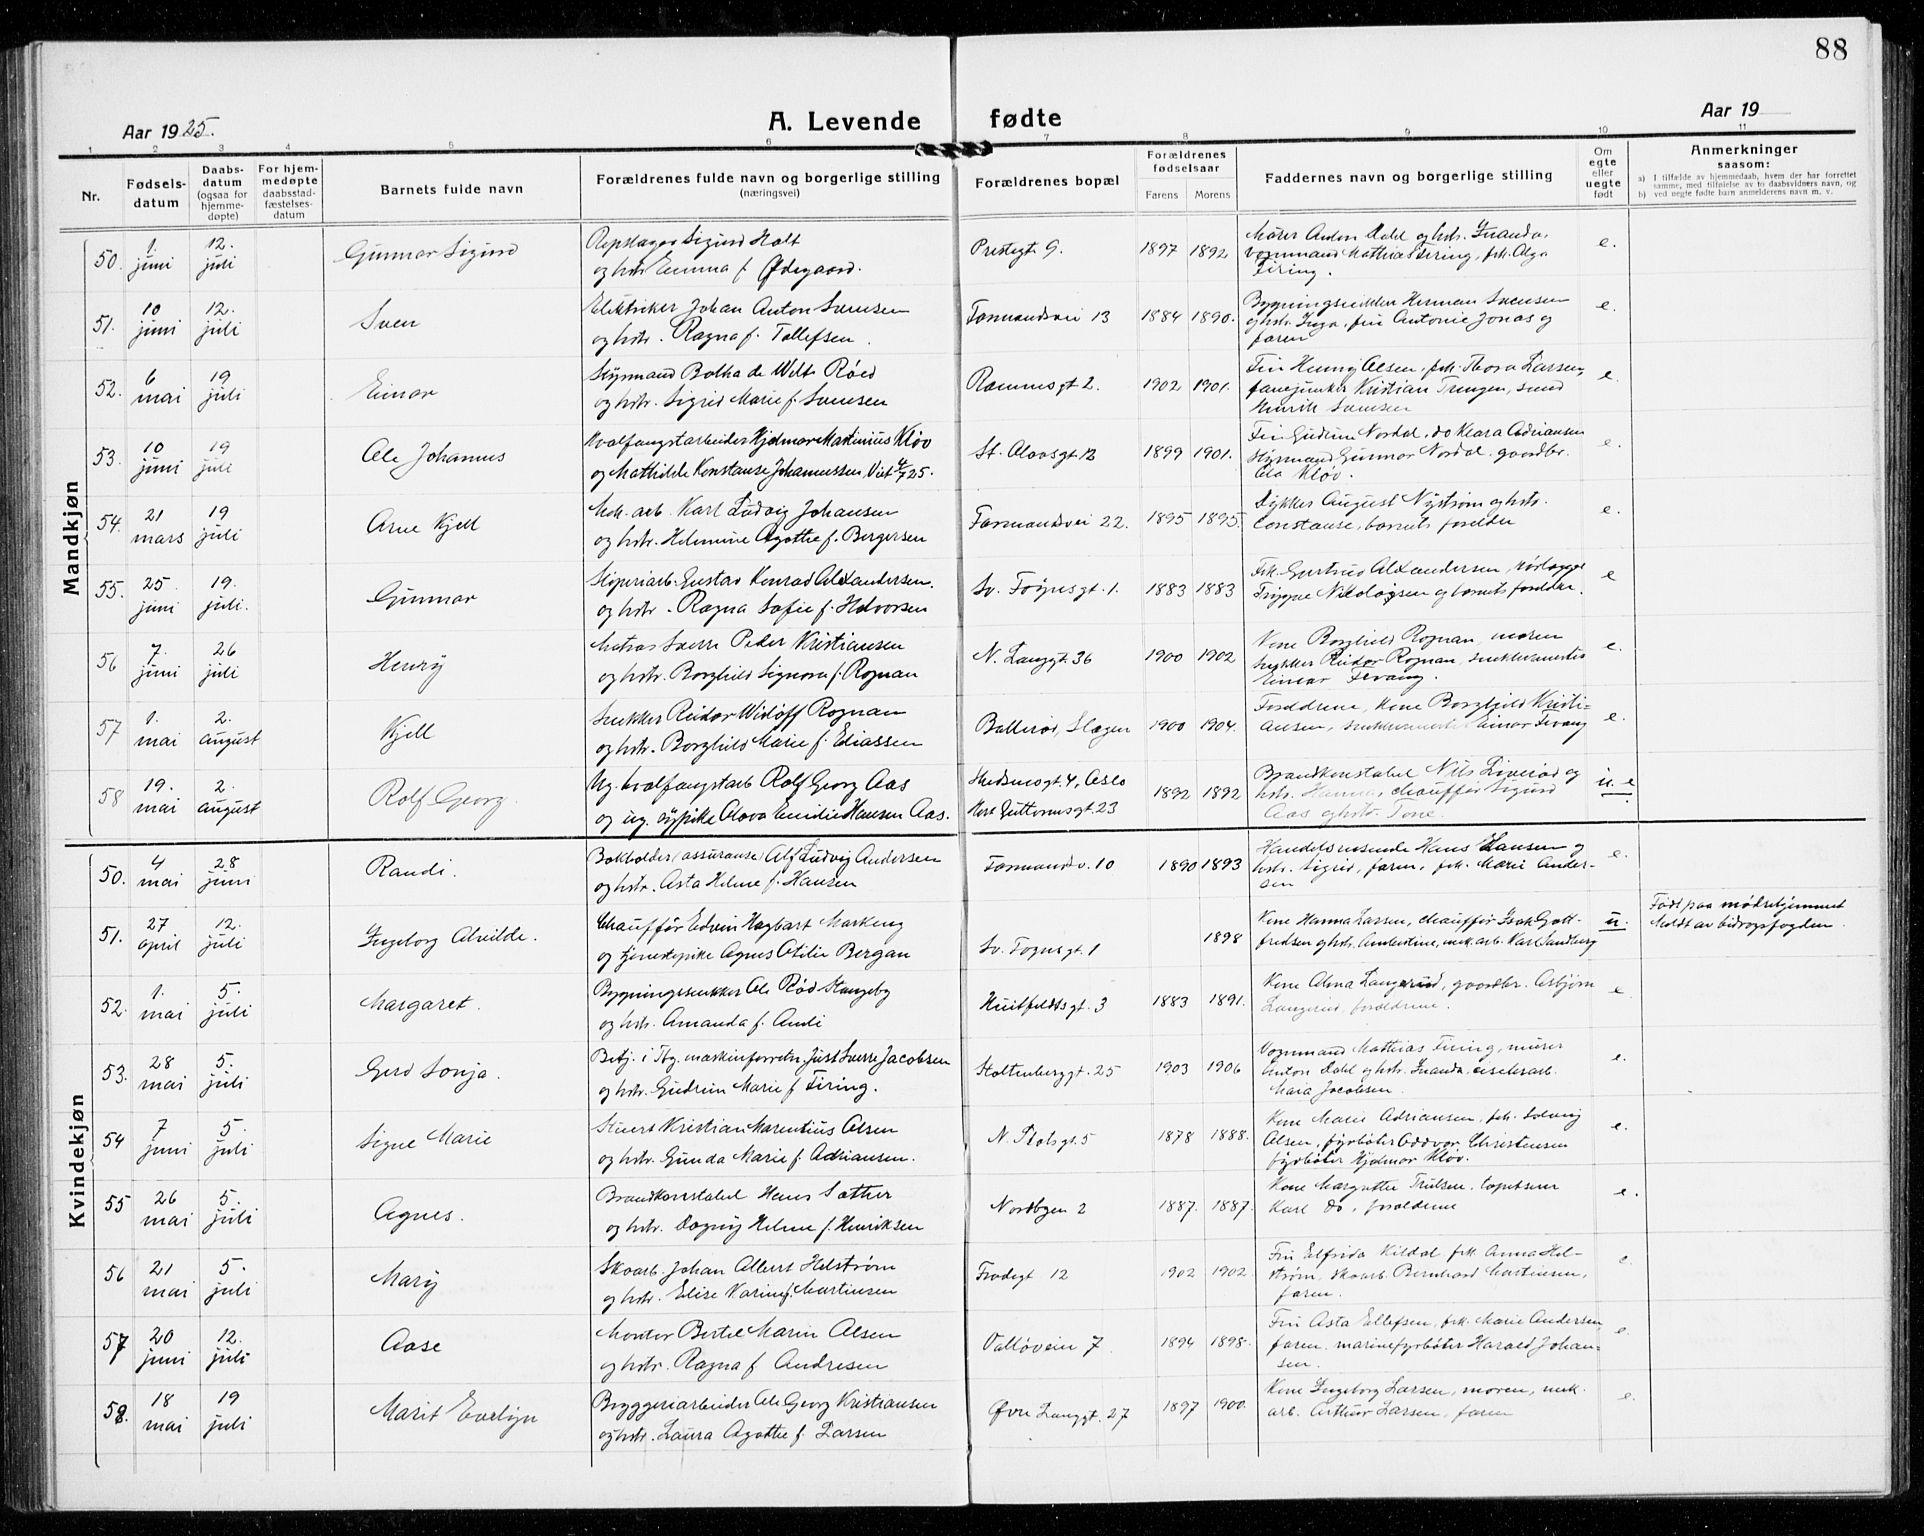 88
Aar 1925.
A. Levende fødte
Aar 19
1 2 3 4 5 6 7 8 9 10 11
Nr.
Fødsels-
datum
Daabs-
datum
(ogsaa for
hjemme-
døpte)
For hjem-
medøpte
daabsstad-
fæstelses-
datum
Barnets fulde navn
Forældrenes fulde navn og borgerlige stilling
(næringsvei)
Forældrenes bopæl
Forældrenes
fødselsaar
Farens Morens
Faddernes navn og borgerlige stilling
Om
egte
eller
uegte
født
Anmerkninger
saasom:
a) I tilfælde av hjemmedaab, hvem der har forrettet
samme, med tilføielse av to daabsvidners navn, og
b) ved uegte fødte barn anmelderens navn m. v.
Mandkjøn
50. 1. juni 12. juli Gunnar Sigurd
Repslager Sigurd Holt
og hstr. Emma f. Ødegaard.
Prestegt. 9. 1897 1892
Murer Anton Dahl og hstr. Inanda,
vognmand Mathias Firing, frk. Olga
Firing.
e.
51. 10 juni 12. juli Sven
Elektriker Johan Anton Svensen
og hstr. Ragna f. Tollefsen.
Farmandsvei 13 1884 1890.
Bygningssnekker Herman Svensen
og hstr. Inga, fru Antonie Jonas og
faren
e.
52. 6 mai 19 juli Einar
Styrmand Botha de Wilt Røed
og hstr. Sigrid Marie f. Svensen
Ramnesgt 2. 1902 1901.
Fru Henny Olsen, frk. Thora Larssen,
fanejunker Kristian Trengen, smed
Henrik Svensen
e.
53. 10 juni 19 juli Ole Johannes
Hvalfangstarbeider Hjalmar Martinius Kløv
og Mathilde Konstanse Johannessen, Viet 4/7 25.
St. Olavsgt. 12 1899 1901.
Fru Gudrun Nordal, do Klara Adriansen
Styrmand Gunnar Nordal, gaardbr.
Ola Kløv.
e.
54. 21 mars 19 juli Arne Kjell
Mek. arb. Karl Ludvig Johansen
og hstr. Helmine Agathe f. Bergersen
Farmandsvei 22. 1895 1895.
Dykker August Nystrøm og hstr.
Constanse, barnets foreldre
e.
55. 25. juni 19. juli. Gunnar
Støperiarb. Gustav Konrad Alexandersen.
og hstr. Ragna Sofie f. Halvorsen
Sv. Foynsgt. 1. 1883 1883
Frk. Gertrud Alexandersen, rørlægger
Trygve Nikolaisen og barnets foreldre.
e
56 7. juni 26 juli Henry
Matros Sverre Peder Kristiansen
og hstr. Borghild Signora f. Rognan
N. Langgt. 36 1900 1902
Kone Borghild Rognan, moren
snekker Reidar Rognan, snekkermester
Einar Fevang.
e.
57 1. mai 2. august Kjell
Snekker Reidar Widloff Rognan
og hstr. Borghild Marie f. Eliassen
Ballerød, Slagen 1900 1904.
Foreldrene, kone Borghild Kristi-
ansen, snekkermester Einar Fevang
e.
58 19. mai 2. august Rolf Georg.
Ug. hvalfangstarb Rolf Georg Aas
og ug. sypike Olava Emilie Hansen Aas.
Hedemsgt. 4, Oslo
Mor Guttormsgt. 23
1892 1892
Brandkonstabel Nils Liverød og
hstr. Hanna, chauffør Sigurd
Aas og hstr. Tone.
u. e
Kvindekjøn
50. 4 mai 28 juni Randi.
Bokholder (assuranse) Alf Ludvig Andersen
og hstr. Asta Helene f. Hansen
Farmandsv. 10 1890 1893
Handelsreisende Hans Hansen og
hstr. Sigrid, faren, frk. Marie Ander-
sen
e.
51. 27 april 12. juli Ingeborg Alvilde.
Chauffør Edvin Hagbart Markeng
og tjenestepike Agnes Otilie Bergan
Sv. Foynsgt. 1 1898
Kone Hanna Larsen, chauffør Isak Gott-
fredsen og hstr. Ambertine, mek. arb. Karl Sandberg
u.
Født paa mødrehjemmet
Meldt av bidragsfogden.
52. 1. mai 5. juli Margaret.
Bygningssnekker Ole Rød Stangeby
og hstr. Amanda f. Amli
Huitfeldtsgt. 3 1883 1891.
Kone Alma Langerud, gaardbr. Asbjørn
Langerud, forældrene.
e
53. 28 mai 5. juli Gerd Sonja.
Betj. i Tbg. maskinforretn. Just Sverre Jacobsen
og hstr. Gudrun Marie f. Firing.
Stoltenberggt. 25 1903 1906
Vognmand Mathias Firing, murer
Anton Dahl og hstr. Inanda, eiselerarb.
Maria Jacobsen.
e.
54 7 juni 5. juli Signe Marie
Stuert Kristian Marentius Olsen
og hstr. Gunda Marie f. Adriansen.
N. Slotsgt. 5 1878 1888.
Kone Marie Adriansen, frk. Solveig
Olsen, fyrbøter Oddvar Christensen
fyrbøter Hjalmar Kløv.
e.
55 26 mai 5. juli Agnes.
Brandkonstabel Hans Sæther
og hstr. Dagny Helene f. Henriksen
Nordbyen 2 1887. 1887.
Kone Margethe Trulsen, tapetserer
Karl do, foreldrene
e.
56 21 mai 5. juli Mary
Skoarb. Johan Albert Helstrøm
og hstr. Elise Karine f. Martinsen
Frodegt 12 1902 1902
Fru Elfrida Kildal, frk. Anna Hel-
strøm, skoarb. Bernhard Martinsen,
faren.
e.
57 20 juni 12. juli Aase
Montør Bertel Marin Olsen
og hstr. Ragna f. Andresen
Valløveien 7. 1894 1898.
Fru Asta Ellefsen, frk. Marie Andersen,
faren, marinefyrbøter Harald Johan-
sen.
e.
58. 18 mai 19 juli Marit Evelyn
Bryggeriarbeider Ole Georg Kristiansen
og hstr. Laura Agathe f. Larsen
Øvre Langgt. 27 1897 1900.
Kone Ingeborg Larsen, moren, mek.
arb. Arthur Larsen, faren
e.